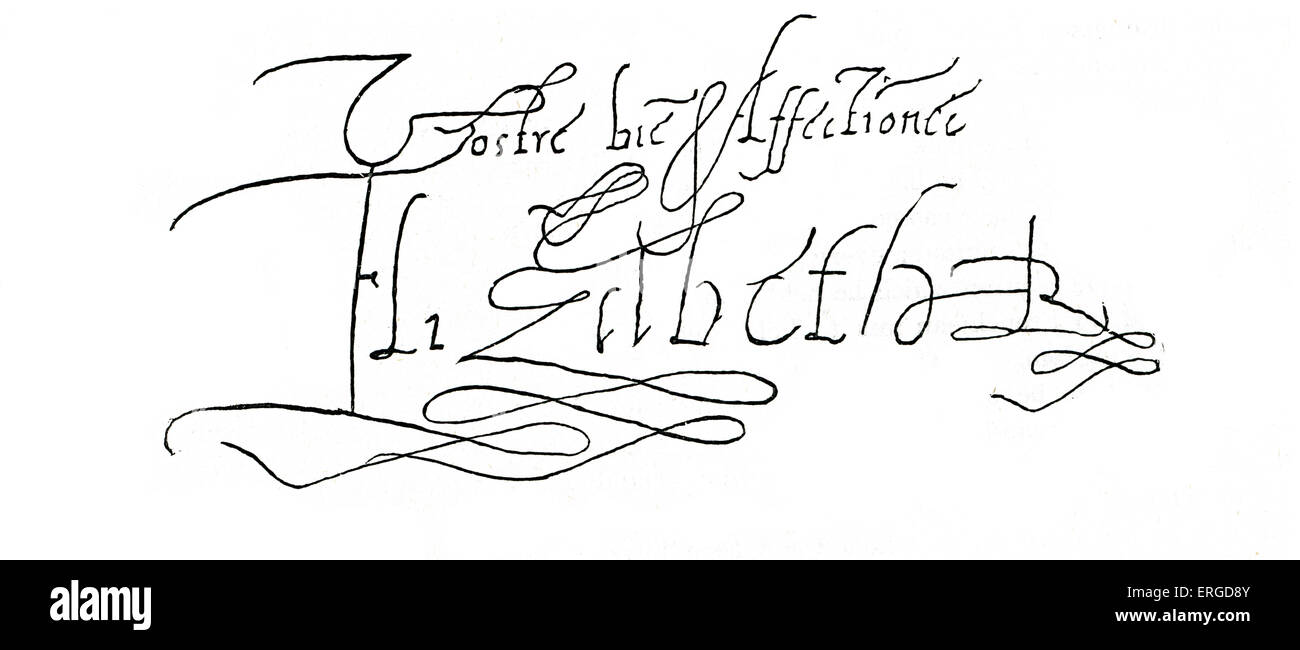 Vostre biē Affectionee
Elizabeth R
alamy
alamy
Image ID: ERGD8Y
www.alamy.com